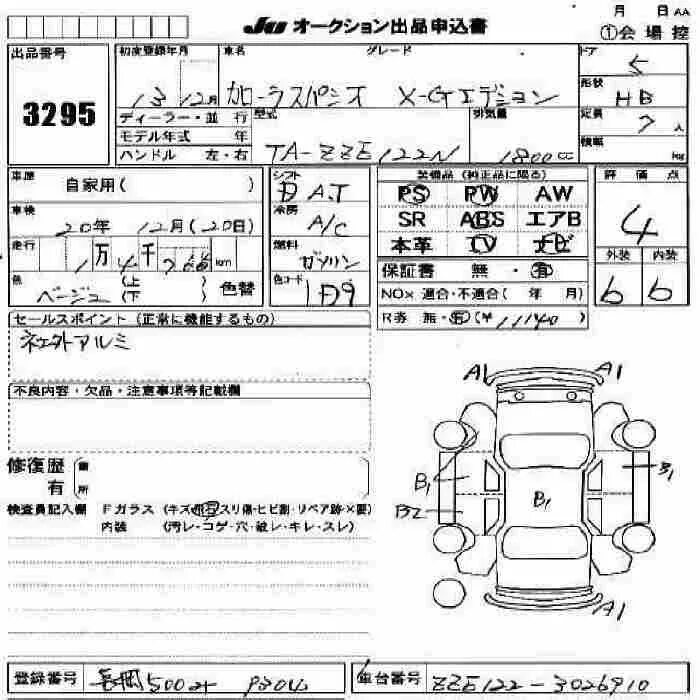 月 日 AA
JU オークション出品申込書 ①会場控
出品番号 初度登録年月 車名 グレード ドア
3295
13 12月 カローラスパシオ X-Gエディション 5
形状 HB
ディーラー・並行 型式 排気量 定員 7人
モデル年式 年 積載 kg
ハンドル 左・右 TA-ZZE122N 1800cc
車歴 自家用( ) シフト AT 装備品(純正品に限る) 評価点
PS PW AW
車検 20年 12月(20日) 冷房 A/C SR ABS エアB 4
本革 TV ナビ
走行 1万4千 km 燃料 ガソリン 外装 内装
保証書 無・有
色 ベージュ (上)(下) 色替 色コード NOx 適合・不適合( 年 月) 6 6
R券 無・有(¥
セールスポイント(正常に機能するもの)
社外アルミ
不良内容・欠品・注意事項等記載欄
A1 A1
修復歴
有 箇所
B1 B1 B1
B2
検査員記入欄 Fガラス (キズ・飛石・スリ傷・ヒビ割・リペア跡・×要)
内装 (汚レ・コゲ・穴・破レ・キレ・スレ)
A1
登録番号 長岡500 車台番号 ZZE122-3026910